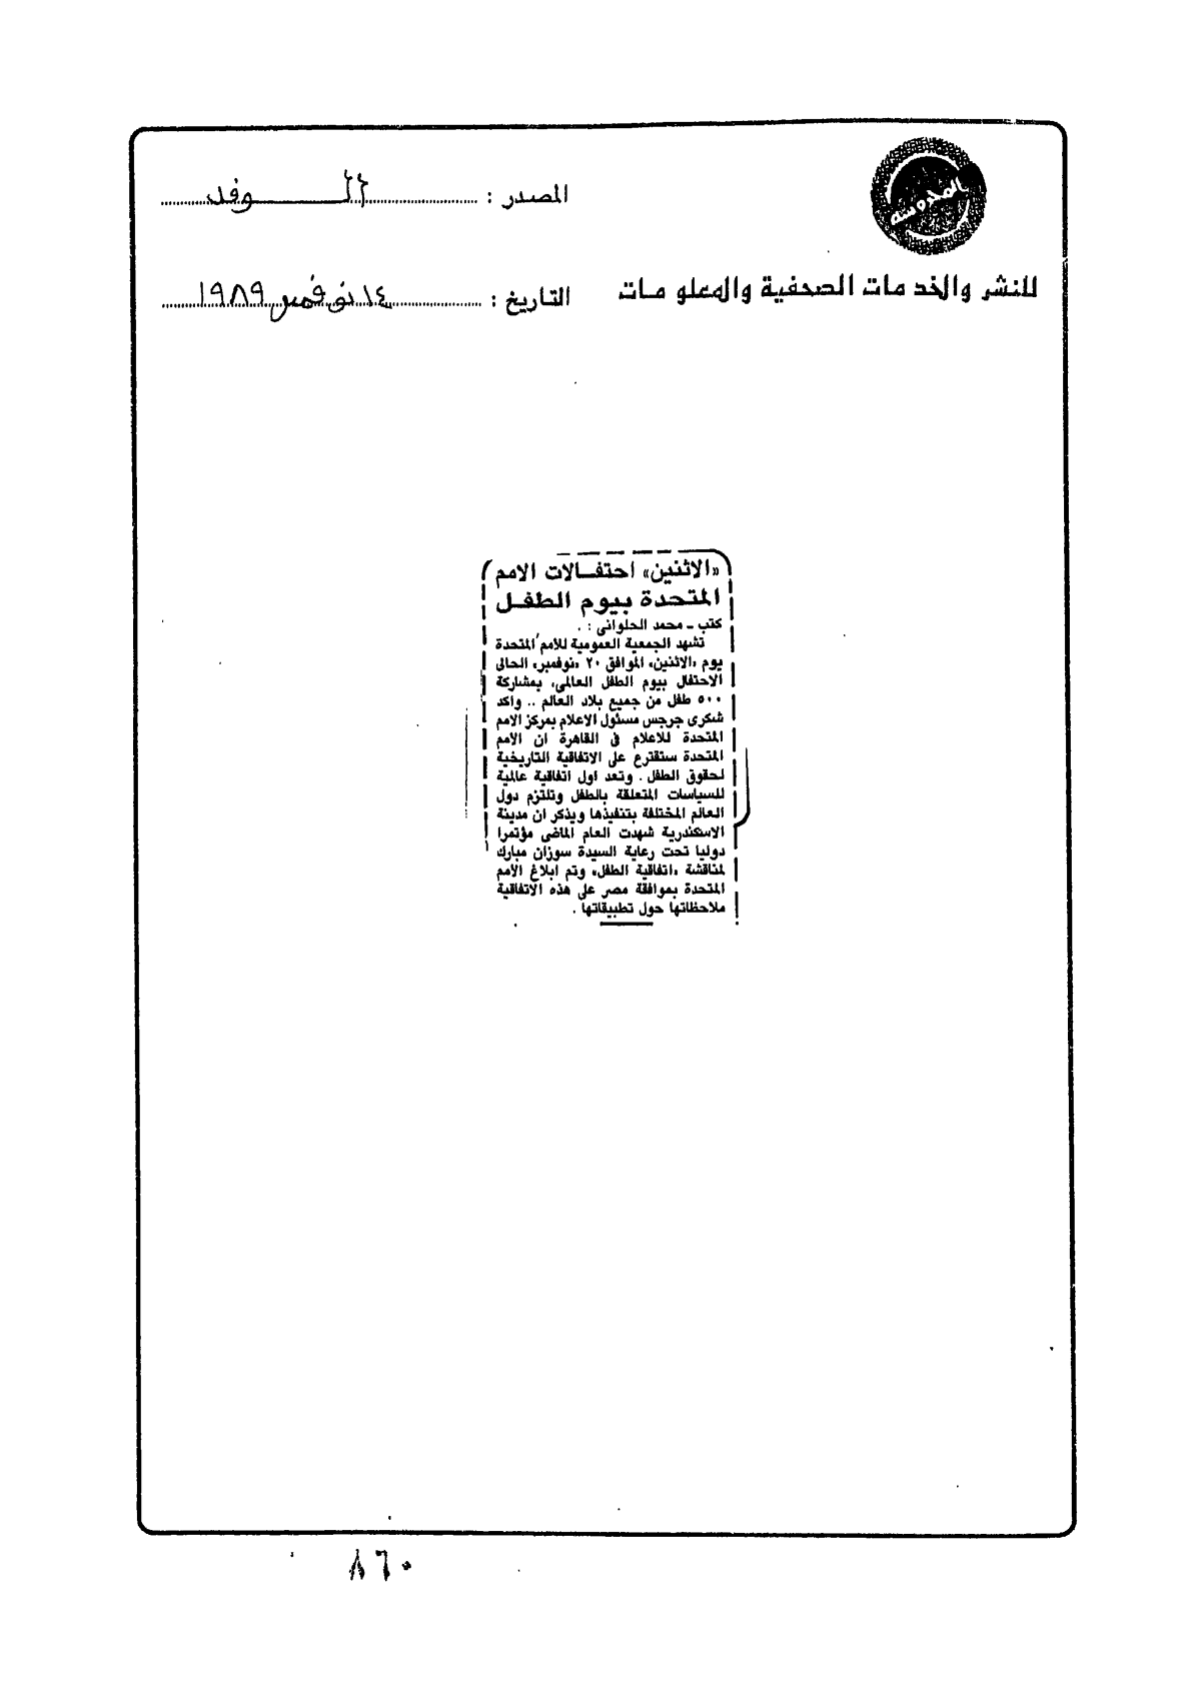 المحروسة
المصدر : الوفد
للنشر والخدمات الصحفية والمعلومات
التاريخ : ١٤ نوفمبر ١٩٨٩
«الاثنين» احتفالات الامم
المتحدة بيوم الطفل
كتب ـ محمد الحلوانى :
تشهد الجمعية العمومية للأمم المتحدة
يوم «الاثنين» الموافق ٢٠ «نوفمبر» الحالى
الاحتفال بيوم الطفل العالمى، بمشاركة
٥٠٠ طفل من جميع بلاد العالم .. واكد
شكرى جرجس مسئول الاعلام بمركز الامم
المتحدة للاعلام فى القاهرة ان الامم
المتحدة ستقترع على الاتفاقية التاريخية
لحقوق الطفل . وتعد اول اتفاقية عالمية
للسياسات المتعلقة بالطفل وتلتزم دول
العالم المختلفة بتنفيذها ويذكر ان مدينة
الاسكندرية شهدت العام الماضى مؤتمرا
دوليا تحت رعاية السيدة سوزان مبارك
لمناقشة «اتفاقية الطفل» وتم ابلاغ الامم
المتحدة بموافقة مصر على هذه الاتفاقية
ملاحظاتها حول تطبيقاتها .
٨٦٠